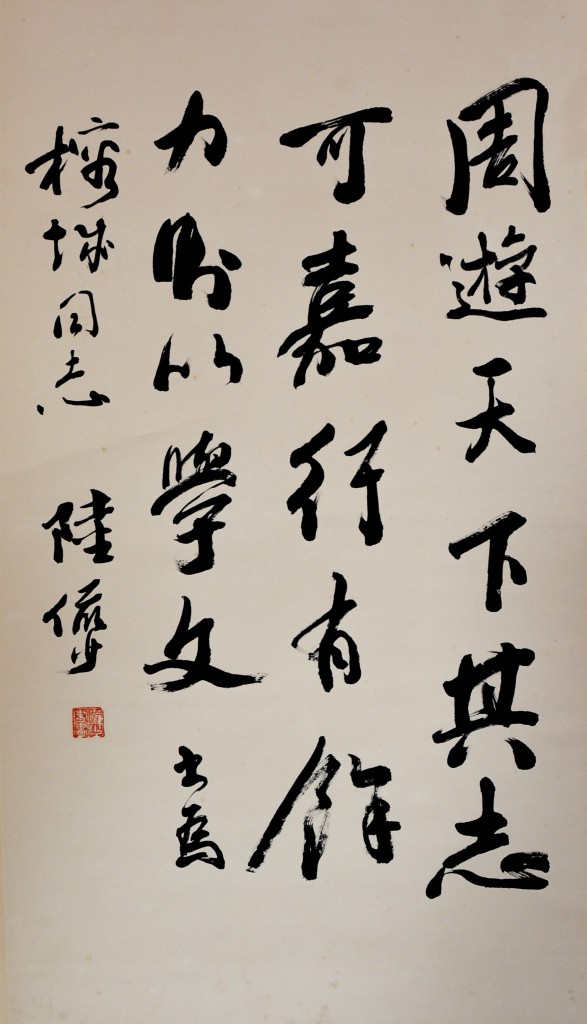 周遊天下其志
可嘉行有餘
力則以學文 書為
榕城同志 陸儼少